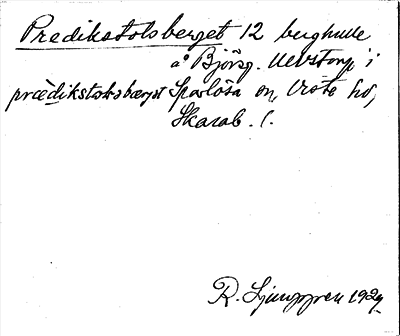 Predikstolsberget 12 berghälle
å Björsg. Ulvstorp i
prædikstolsbærjet Sparlösa sn, Viste hd,
Skarab. l.
R. Ljunggren 1929